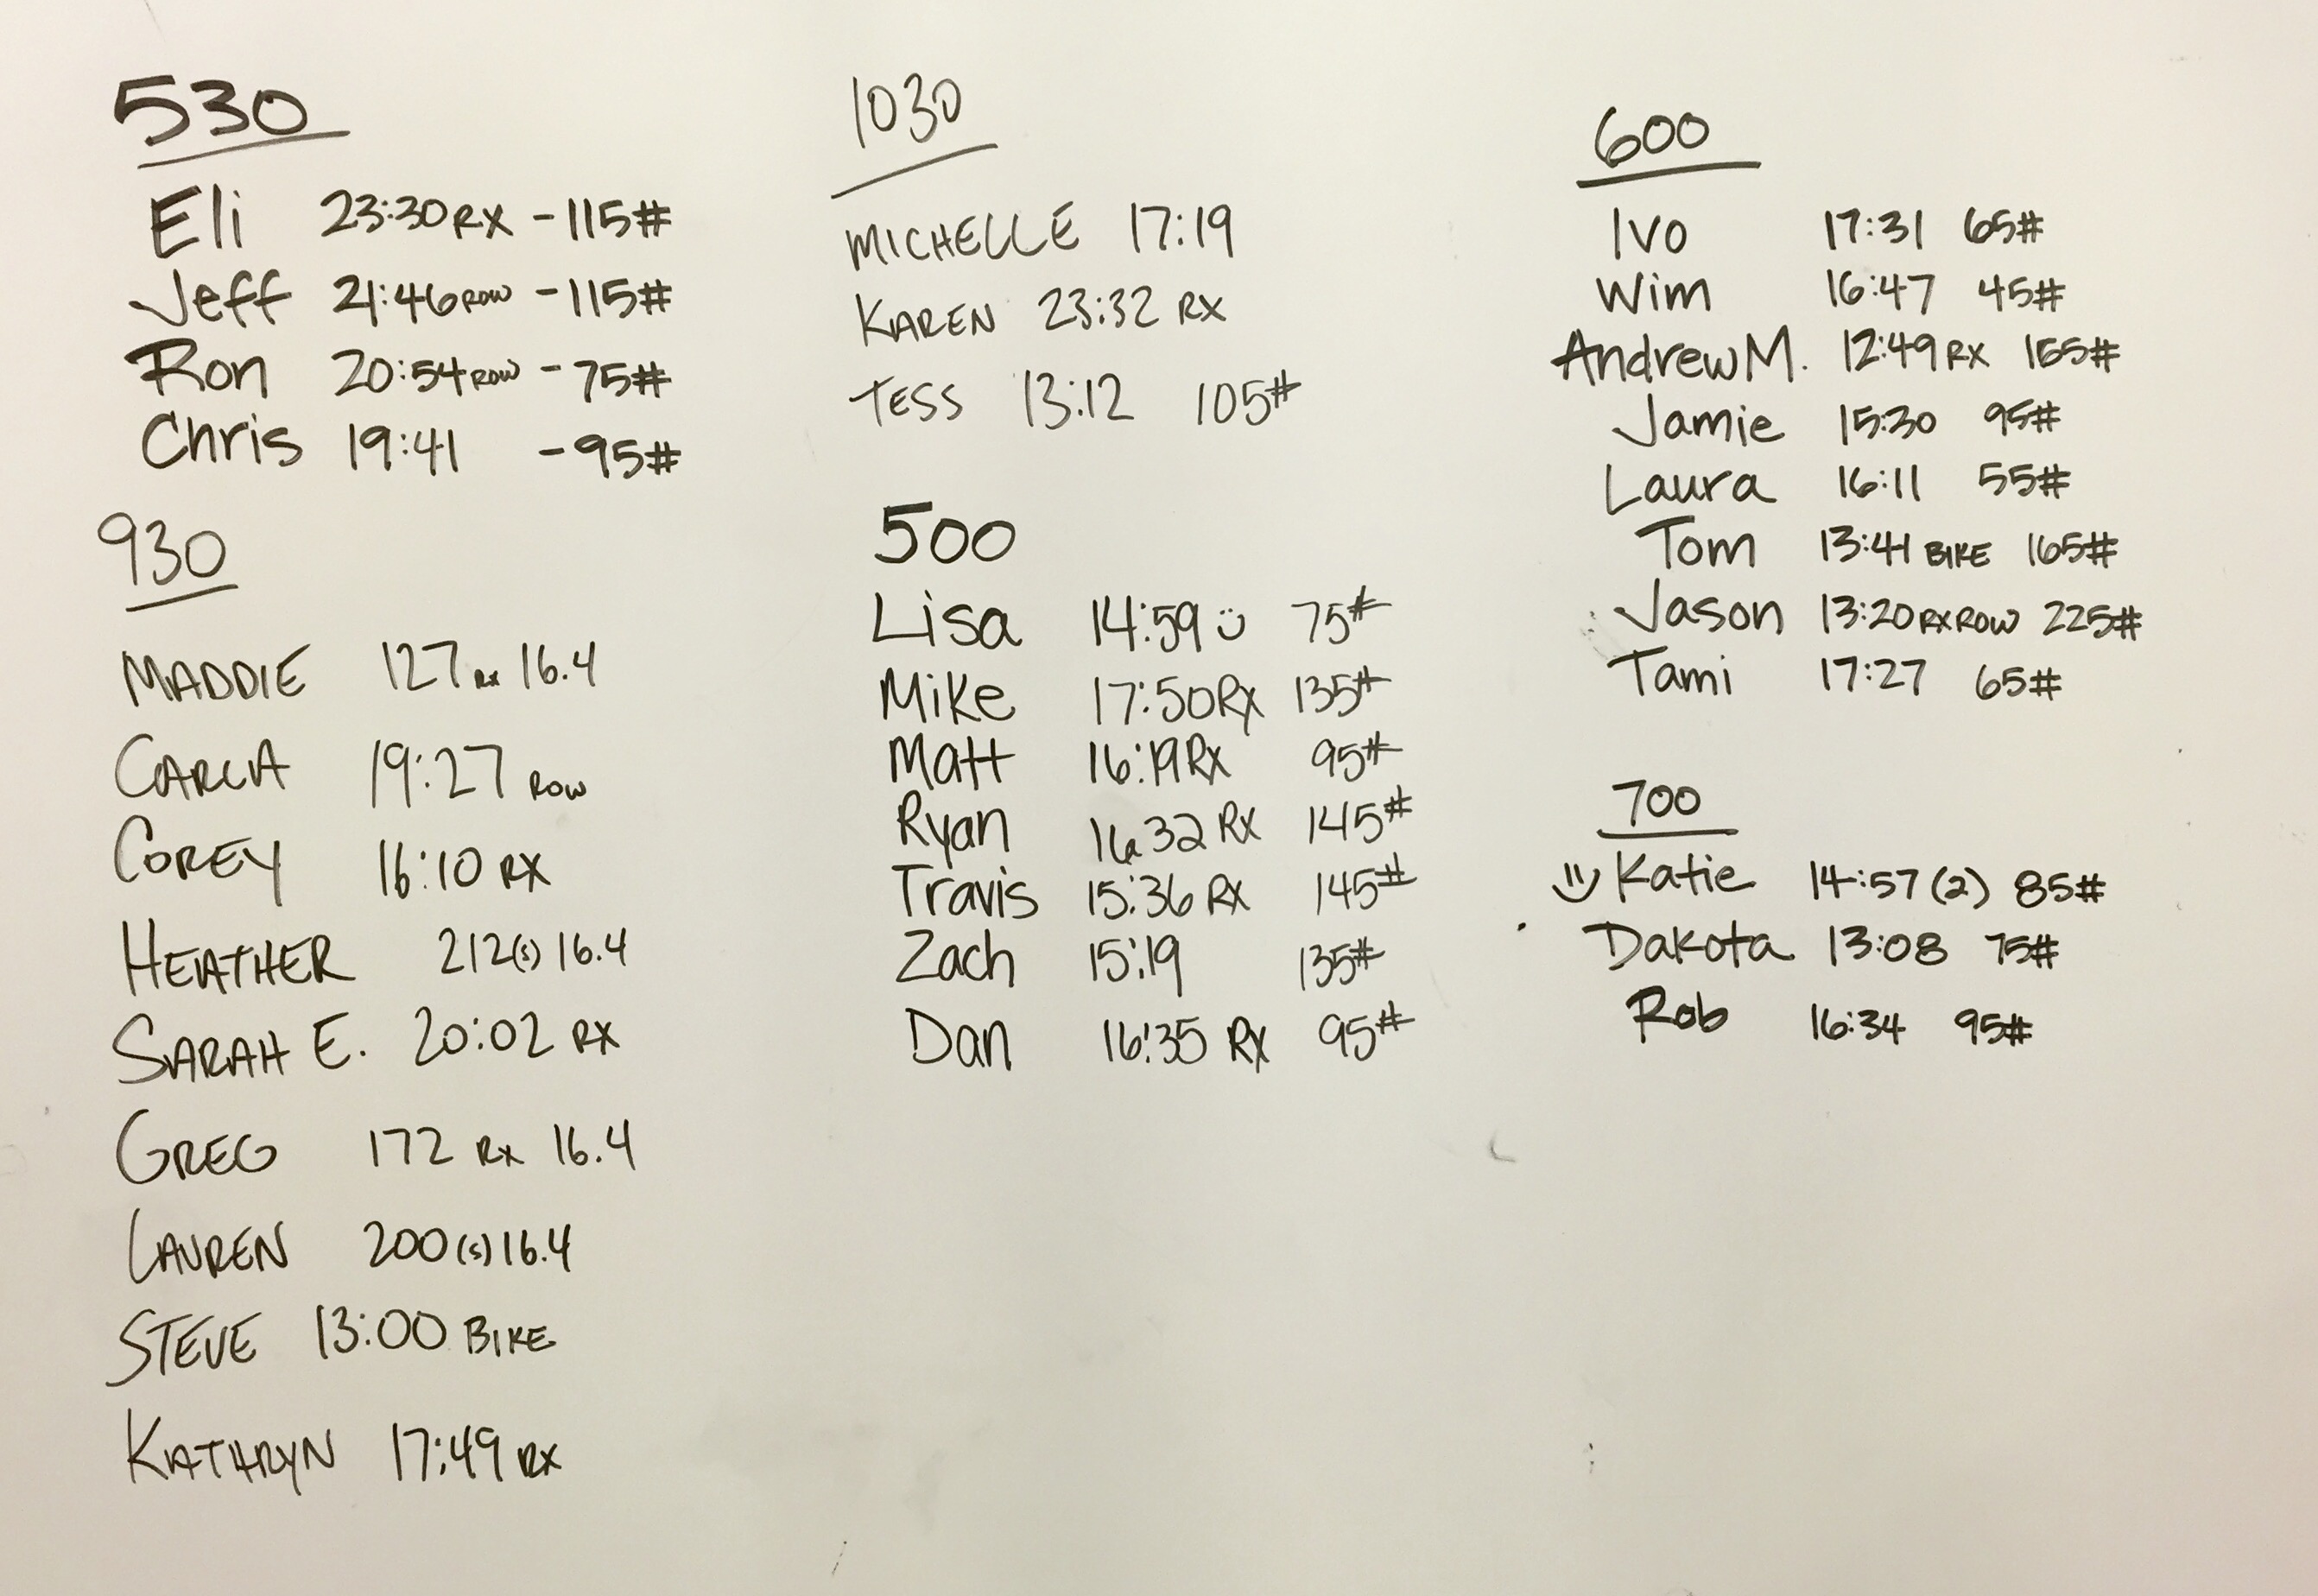 530
Eli 23:30 RX - 115#
Jeff 21:46 ROW - 115#
Ron 20:54 ROW - 75#
Chris 19:41 - 95#
930
MADDIE 127 RX 16.4
CARLA 19:27 ROW
COREY 16:10 RX
HEATHER 212(s) 16.4
SARAH E. 20:02 RX
GREG 172 RX 16.4
LAUREN 200(s) 16.4
STEVE 13:00 BIKE
KATHRYN 17:49 RX
1030
MICHELLE 17:19
KAREN 23:32 RX
TESS 13:12 105#
500
Lisa 14:59 75#
Mike 17:50 Rx 135#
Matt 16:19 Rx 95#
Ryan 16:32 Rx 145#
Travis 15:36 Rx 145#
Zach 15:19 135#
Dan 16:35 Rx 95#
600
Ivo 17:31 65#
Wim 16:47 45#
Andrew M. 12:49 RX #
Jamie 15:30 95#
Laura 16:11 55#
Tom 13:41 BIKE 165#
Jason 13:20 RX ROW 225#
Tami 17:27 65#
700
Katie 14:57 (2) 85#
Dakota 13:08 75#
Rob 16:34 95#